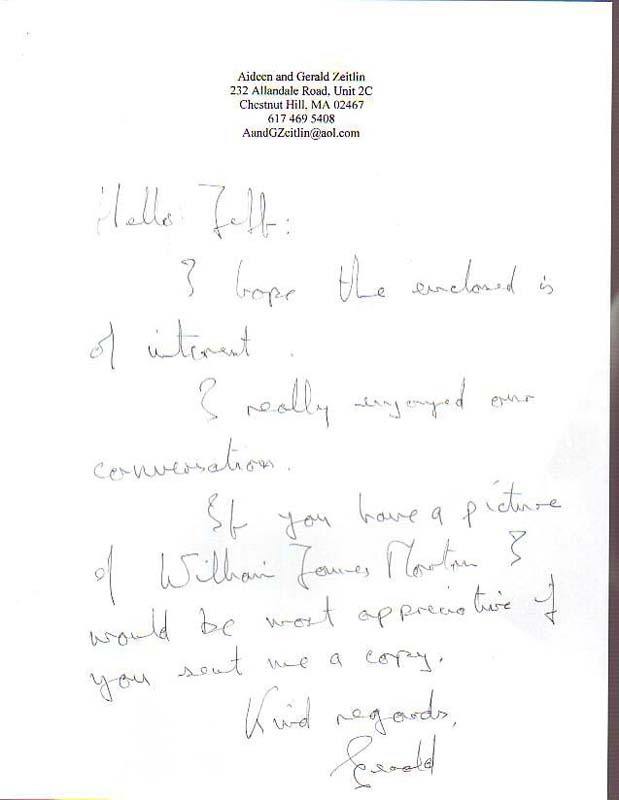 Aideen and Gerald Zeitlin
232 Allandale Road, Unit 2C
Chestnut Hill, MA 02467
617 469 5408
AandGZeitlin@aol.com
Hello Jeff:
I hope the enclosed is
of interest.
I really enjoyed our
conversation.
If you have a picture
of William James Martin I
would be most appreciative if
you sent me a copy.
Kind regards,
Gerald